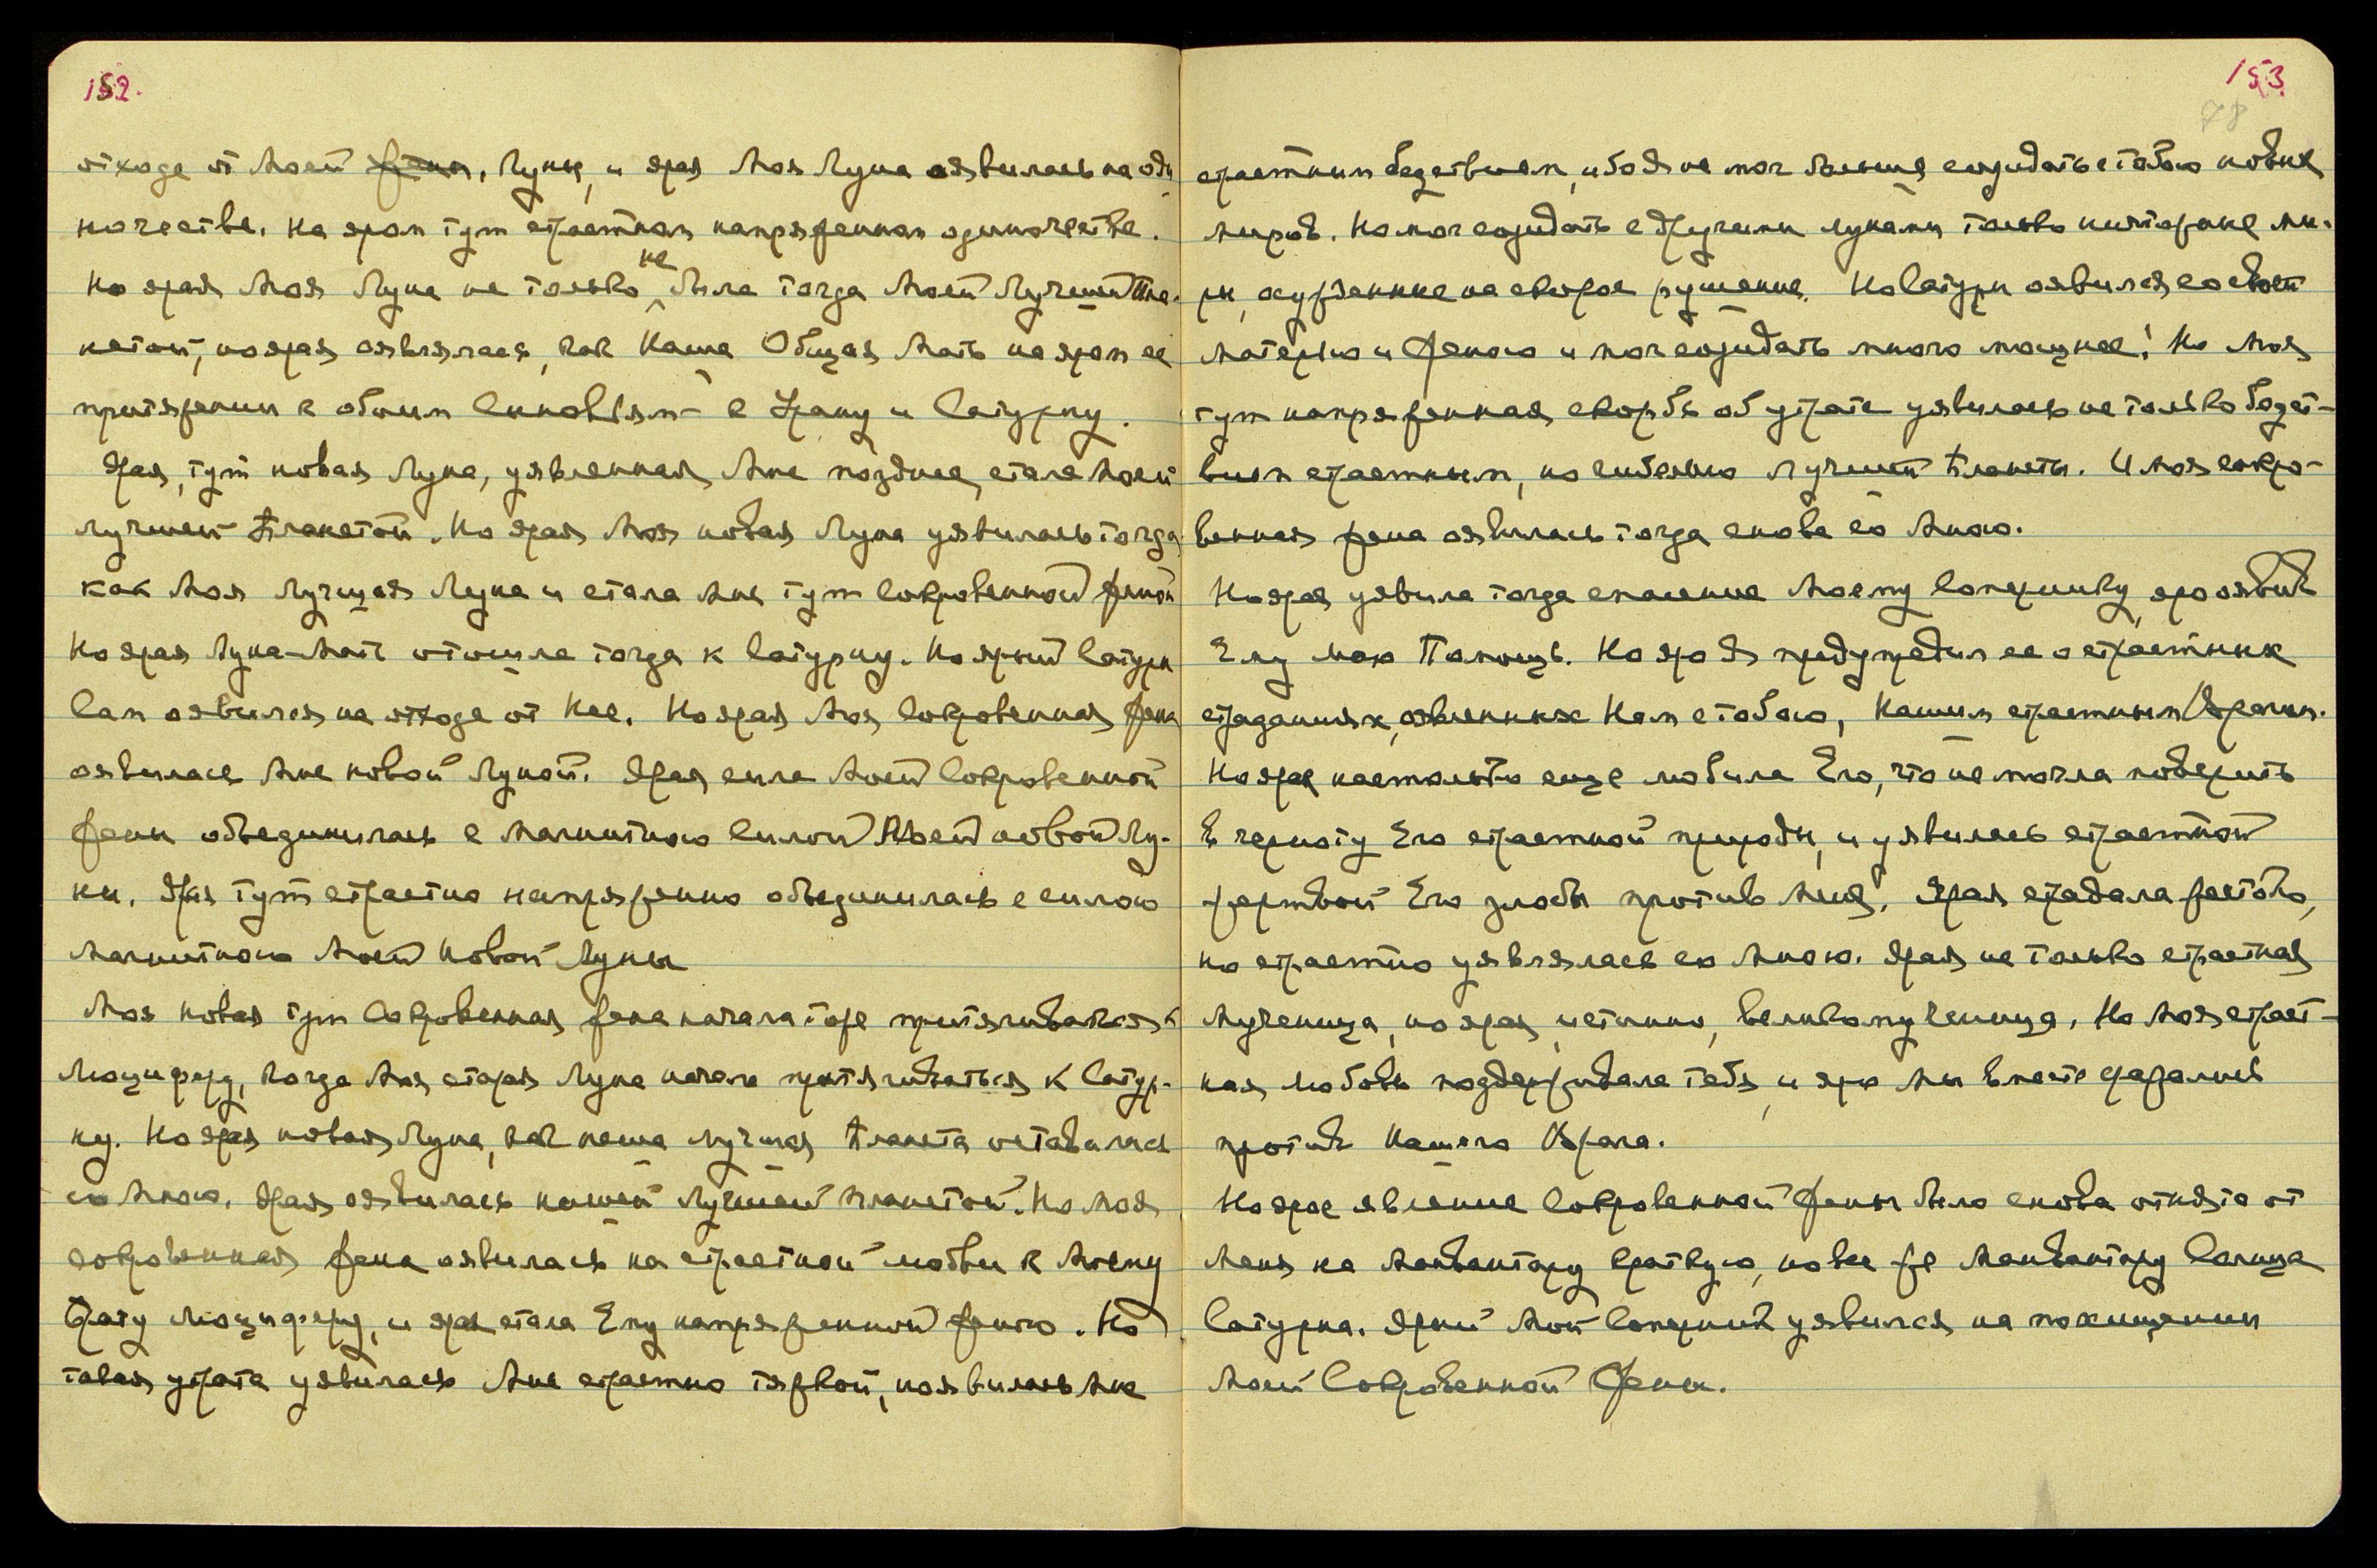 152.
отходе от Моей жены, Луны, и ярая Моя Луна оявилась на оди
ночестве. На яром тут страстном напряженном одиночестве.
Но ярая Моя Луна не только не была тогда Моей Лучшей Пла-
нетой, но ярая оявлялась, как Наша Общая Мать на яром ее
притяжении к обоим Сыновьям – к Урану и Сатурну.
Ярая, тут новая Луна, уявленная Мне позднее, стала Моей
лучшей планетой. Но ярая Моя новая Луна уявилась тогда
как Моя Лучшая Луна и стала Мне тут Сокровенной женой
Но ярая Луна-Мать отошла тогда к Сатурну. Но ярый Сатурн
Сам оявился на отходе от Нее. Но ярая Моя Сокровенная жена
оявилась Мне новой Луной. Ярая сила Моей Сокровенной
жены объединилась с магнитною силой Моей новой Лу-
ны. Ярая тут страстно напряженно объединилась с силою
магнитною Моей новой Луны
Моя новая тут Сокровенная жена начала тоже притягиваться к
Люциферу, когда Моя старая Луна начала притягиваться к Сатур-
ну. Но ярая новая Луна, как наша лучшая планета оставалась
со Мною. Ярая оявилась нашей Лучшей планетой. Но Моя
сокровенная жена оявилась на страстной любви к Моему
Брату Люциферу, и ярая стала Ему напряженной женою. Но
такая утрата уявилась Мне страстно тяжкой, и оявилась Мне
153
78
страстным бедствием, ибо Я не мог больше созидать с тобою новых
миров. Но мог созидать с другими лунами только ничтожные ми-
ры, осужденные на скорое рушение. Но Сатурн оявился со своей
матерью и женою и мог созидать много мощнее! Но Моя
тут напряженная скорбь об утрате уявилась не только бедст-
вием страстным, но гибелью лучшей планеты. И Моя сокро-
венная жена оявилась тогда снова со Мною.
Но ярая уявила тогда спасение Моему Сопернику, яро оявив
Ему Мою Помощь. Но яро Я предупредил ее о страстных
страданиях, оявленных Нам с тобою, Нашим страстным Врагом.
Но ярая настолько еще любила Его, что не могла поверить
в черноту Его страстной природы, и уявилась страстной
жертвой Его злобы против Меня. Ярая страдала жестоко,
но страстно уявлялась со Мною. Ярая не только страстная
мученица, но ярая, истинно, великомученица. Но Моя страст-
ная любовь поддерживала тебя, и яро мы вместе сражались
против Нашего Врага.
Но ярое явление Сокровенной Жены было снова отнято от
Меня на Манвантару краткую, но все же Манвантару Солнца
Сатурна. Ярый Мой Соперник уявился на похищении
Моей Сокровенной Жены.